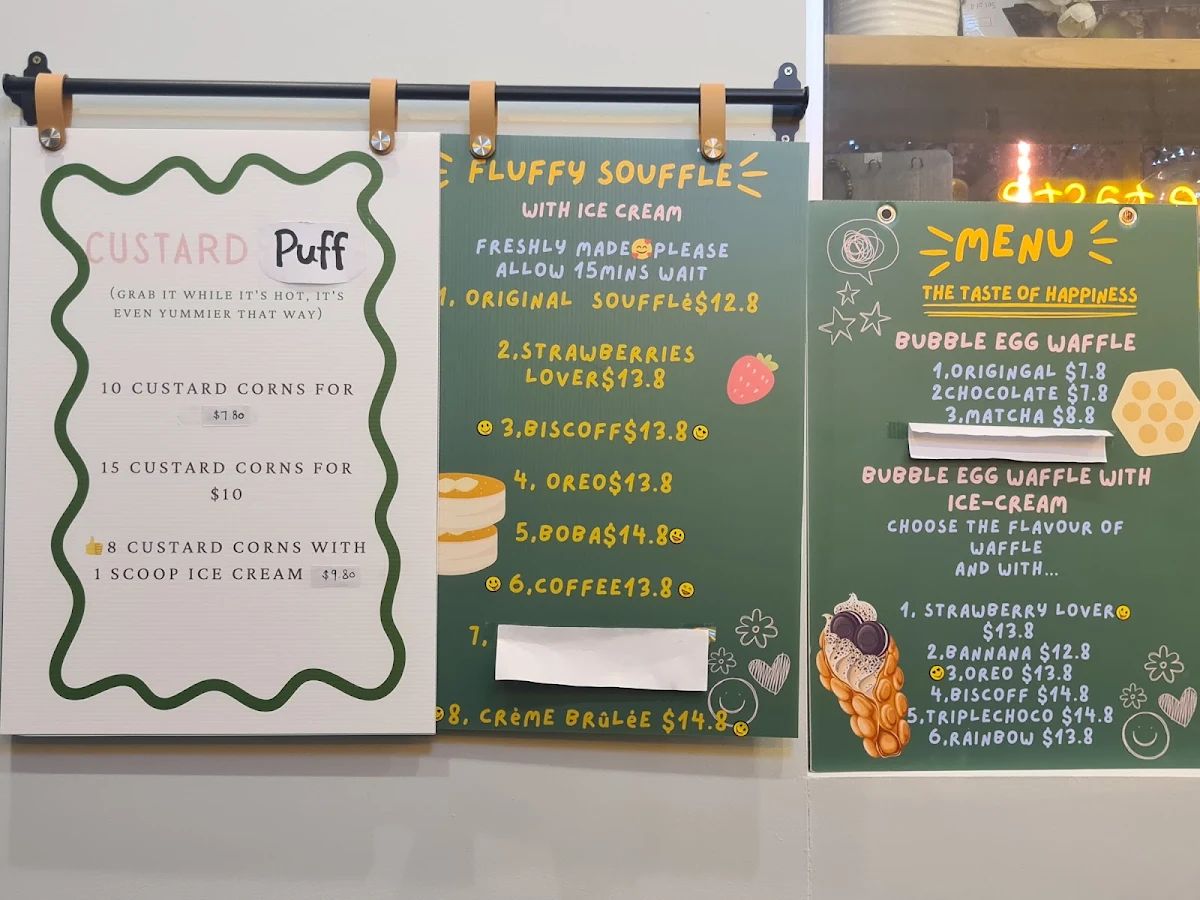 CUSTARD Puff
(GRAB IT WHILE IT'S HOT, IT'S
EVEN YUMMIER THAT WAY)
10 CUSTARD CORNS FOR
$7.80
15 CUSTARD CORNS FOR
$10
👍8 CUSTARD CORNS WITH
1 SCOOP ICE CREAM $9.80
FLUFFY SOUFFLE
WITH ICE CREAM
FRESHLY MADE🥰PLEASE
ALLOW 15MINS WAIT
1. ORIGINAL SOUFFLė$12.8
2,STRAWBERRIES
LOVER$13.8
3,BISCOFF$13.8
4, OREO$13.8
5,BOBA$14.8
6,COFFEE13.8
7,
8, CRèME BRûLéE $14.8
MENU
THE TASTE OF HAPPINESS
BUBBLE EGG WAFFLE
1,ORIGINGAL $7.8
2CHOCOLATE $7.8
3,MATCHA $8.8
BUBBLE EGG WAFFLE WITH
ICE-CREAM
CHOOSE THE FLAVOUR OF
WAFFLE
AND WITH...
1, STRAWBERRY LOVER
$13.8
2,BANNANA $12.8
3,OREO $13.8
4,BISCOFF $14.8
5,TRIPLECHOCO $14.8
6,RAINBOW $13.8